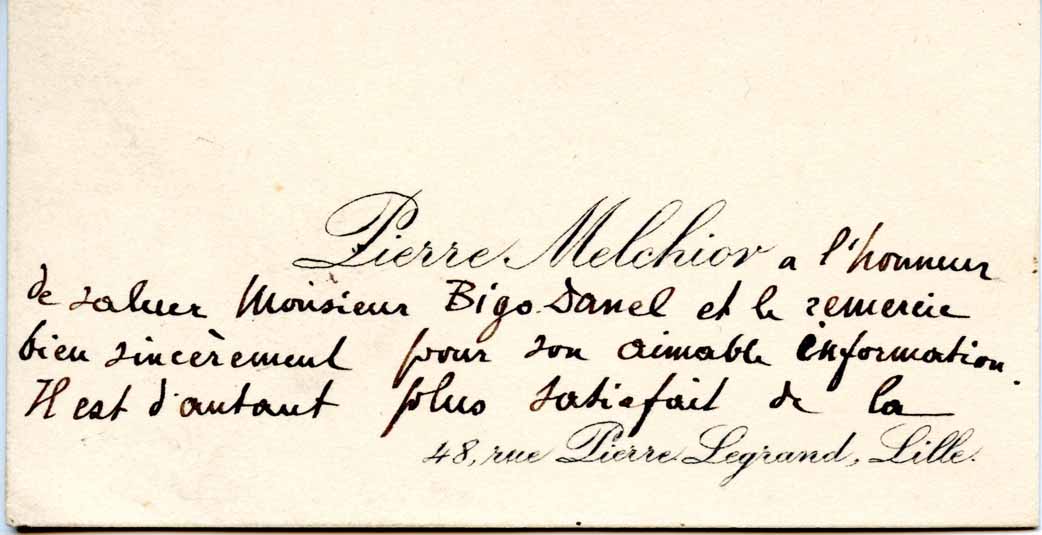 Pierre Melchior a l'honneur
de saluer Monsieur Bigo-Danel et le remercie
bien sincèrement pour son aimable information.
Il est d'autant plus satisfait de la
48, rue Pierre Legrand, Lille.